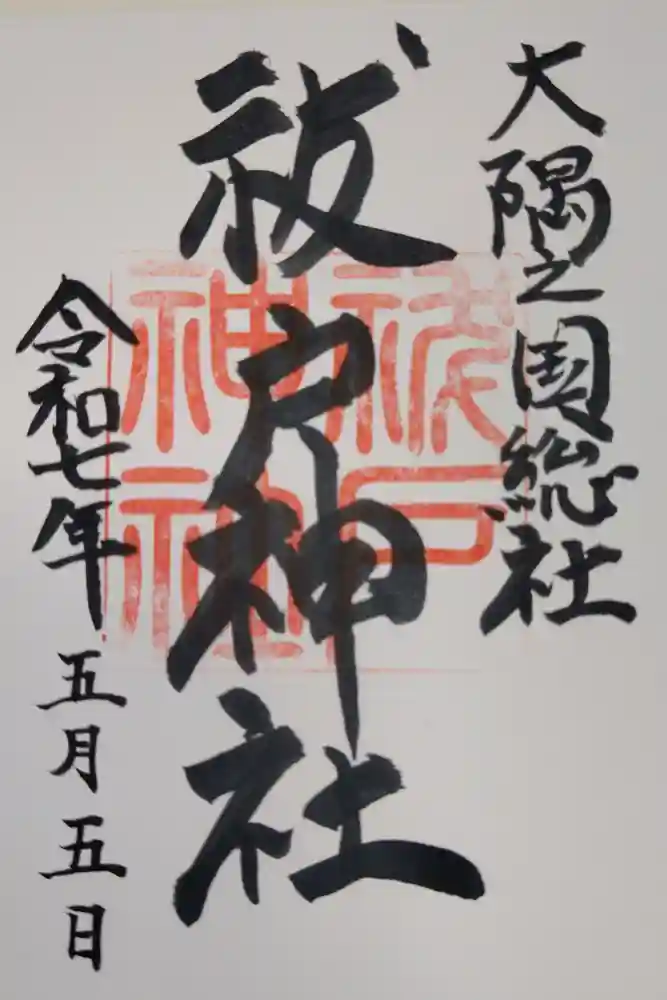 大隅之国総社
祓戸神社
祓戸神社
令和七年五月五日